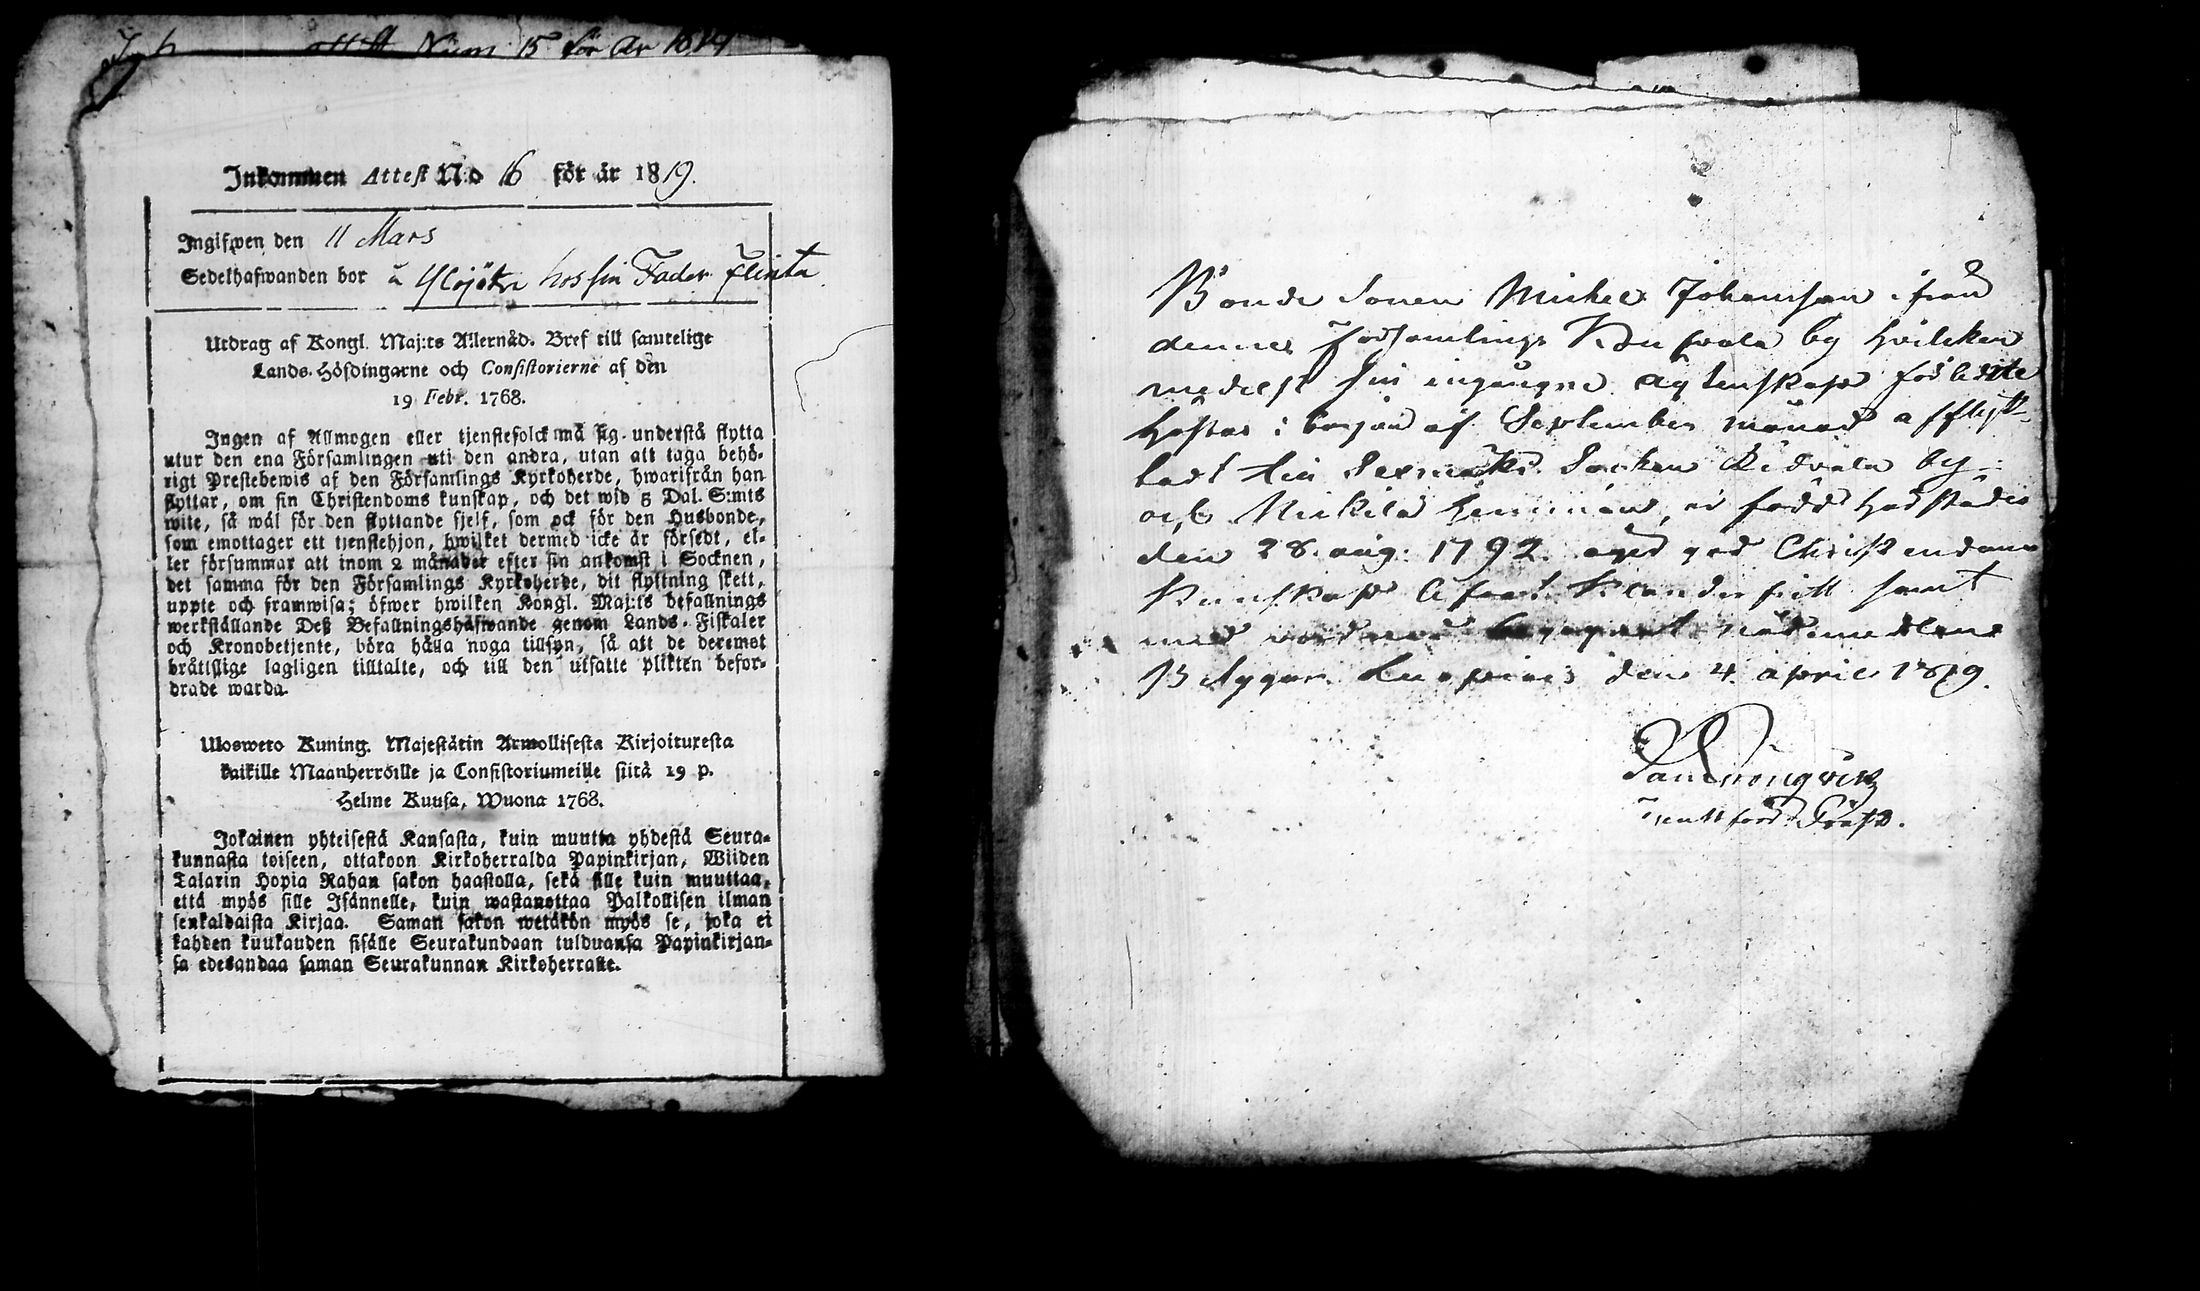 attst Num 15 för år 1819
Inkommen Attest N:o 16 för år 1819.
Ingifwen den 11 Mars
Sedelhafwanden bor å Ylöjärvi hos sin Fader Flinta
Utdrag af Kongl. Maj:ts Allernåd. Bref till samtelige
Lands-Höfdingarne och Consistorierne af den
19 Febr. 1768.
Ingen af Allmogen eller tjenstefolck må sig understå flytta
utur den ena Församlingen uti den andra, utan att taga behö-
rigt Prestebewis af den Församlings Kyrkoherde, hwarifrån han
flyttar, om sin Christendoms kunskap, och det wid 5 Dal. S:mts
wite, så wäl för den flyttande sjelf, som ock för den Husbonde,
som emottager ett tjenstehjon, hwilket dermed icke är försedt, el-
ler försummar att inom 2 månader efter sin ankomst i Socknen,
det samma för den Församlings Kyrkoherde, dit flyttning skett,
uppte och framwisa; öfwer hwilken Kongl. Maj:ts befallnings
werkställande Deß Befallningshafwande genom Lands-Fiskaler
och Kronobetjente, böra hålla noga tillsyn, så att de deremot
bråttslige lagligen tilltalte, och till den utsatte plikten befor-
drade warda.
Ulosweto Kuning. Majestätin Armollisesta Kirjoituresta
kaikille Maanherroille ja Consistoriumeille siitä 19 p.
Helme Kuusa, Wuona 1768.
Jokainen yhteisestä Kansasta, kuin muutta yhdestä Seura-
kunnasta toiseen, ottakoon Kirkoherralda Papinkirjan, Wiiden
Talarin Hopia Rahan sakon haastolla, sekä sille kuin muuttaa,
että myös sille Isännelle, kuin wastanottaa Palkollisen ilman
senkaldaista Kirjaa. Saman sakon wetäkön myös se, joka ei
kahden kuukauden sisälle Seurakundaan tulduansa Papinkirjan-
sa edesandaa saman Seurakunnan Kirkoherralle.
Bonde Sonen Michel Johansson ifrån
dennes Församlings by hvilcken
medelst sin ingångne ägtenskap förledite
Höstas i början af September månad afflyt-
tadt till Socken by
och Mickila Hemman, är född härstädes
den 28 aug: 1792. eger god Christendoms
Kunskap samt
med nådemedlens
den 4 april 1819.